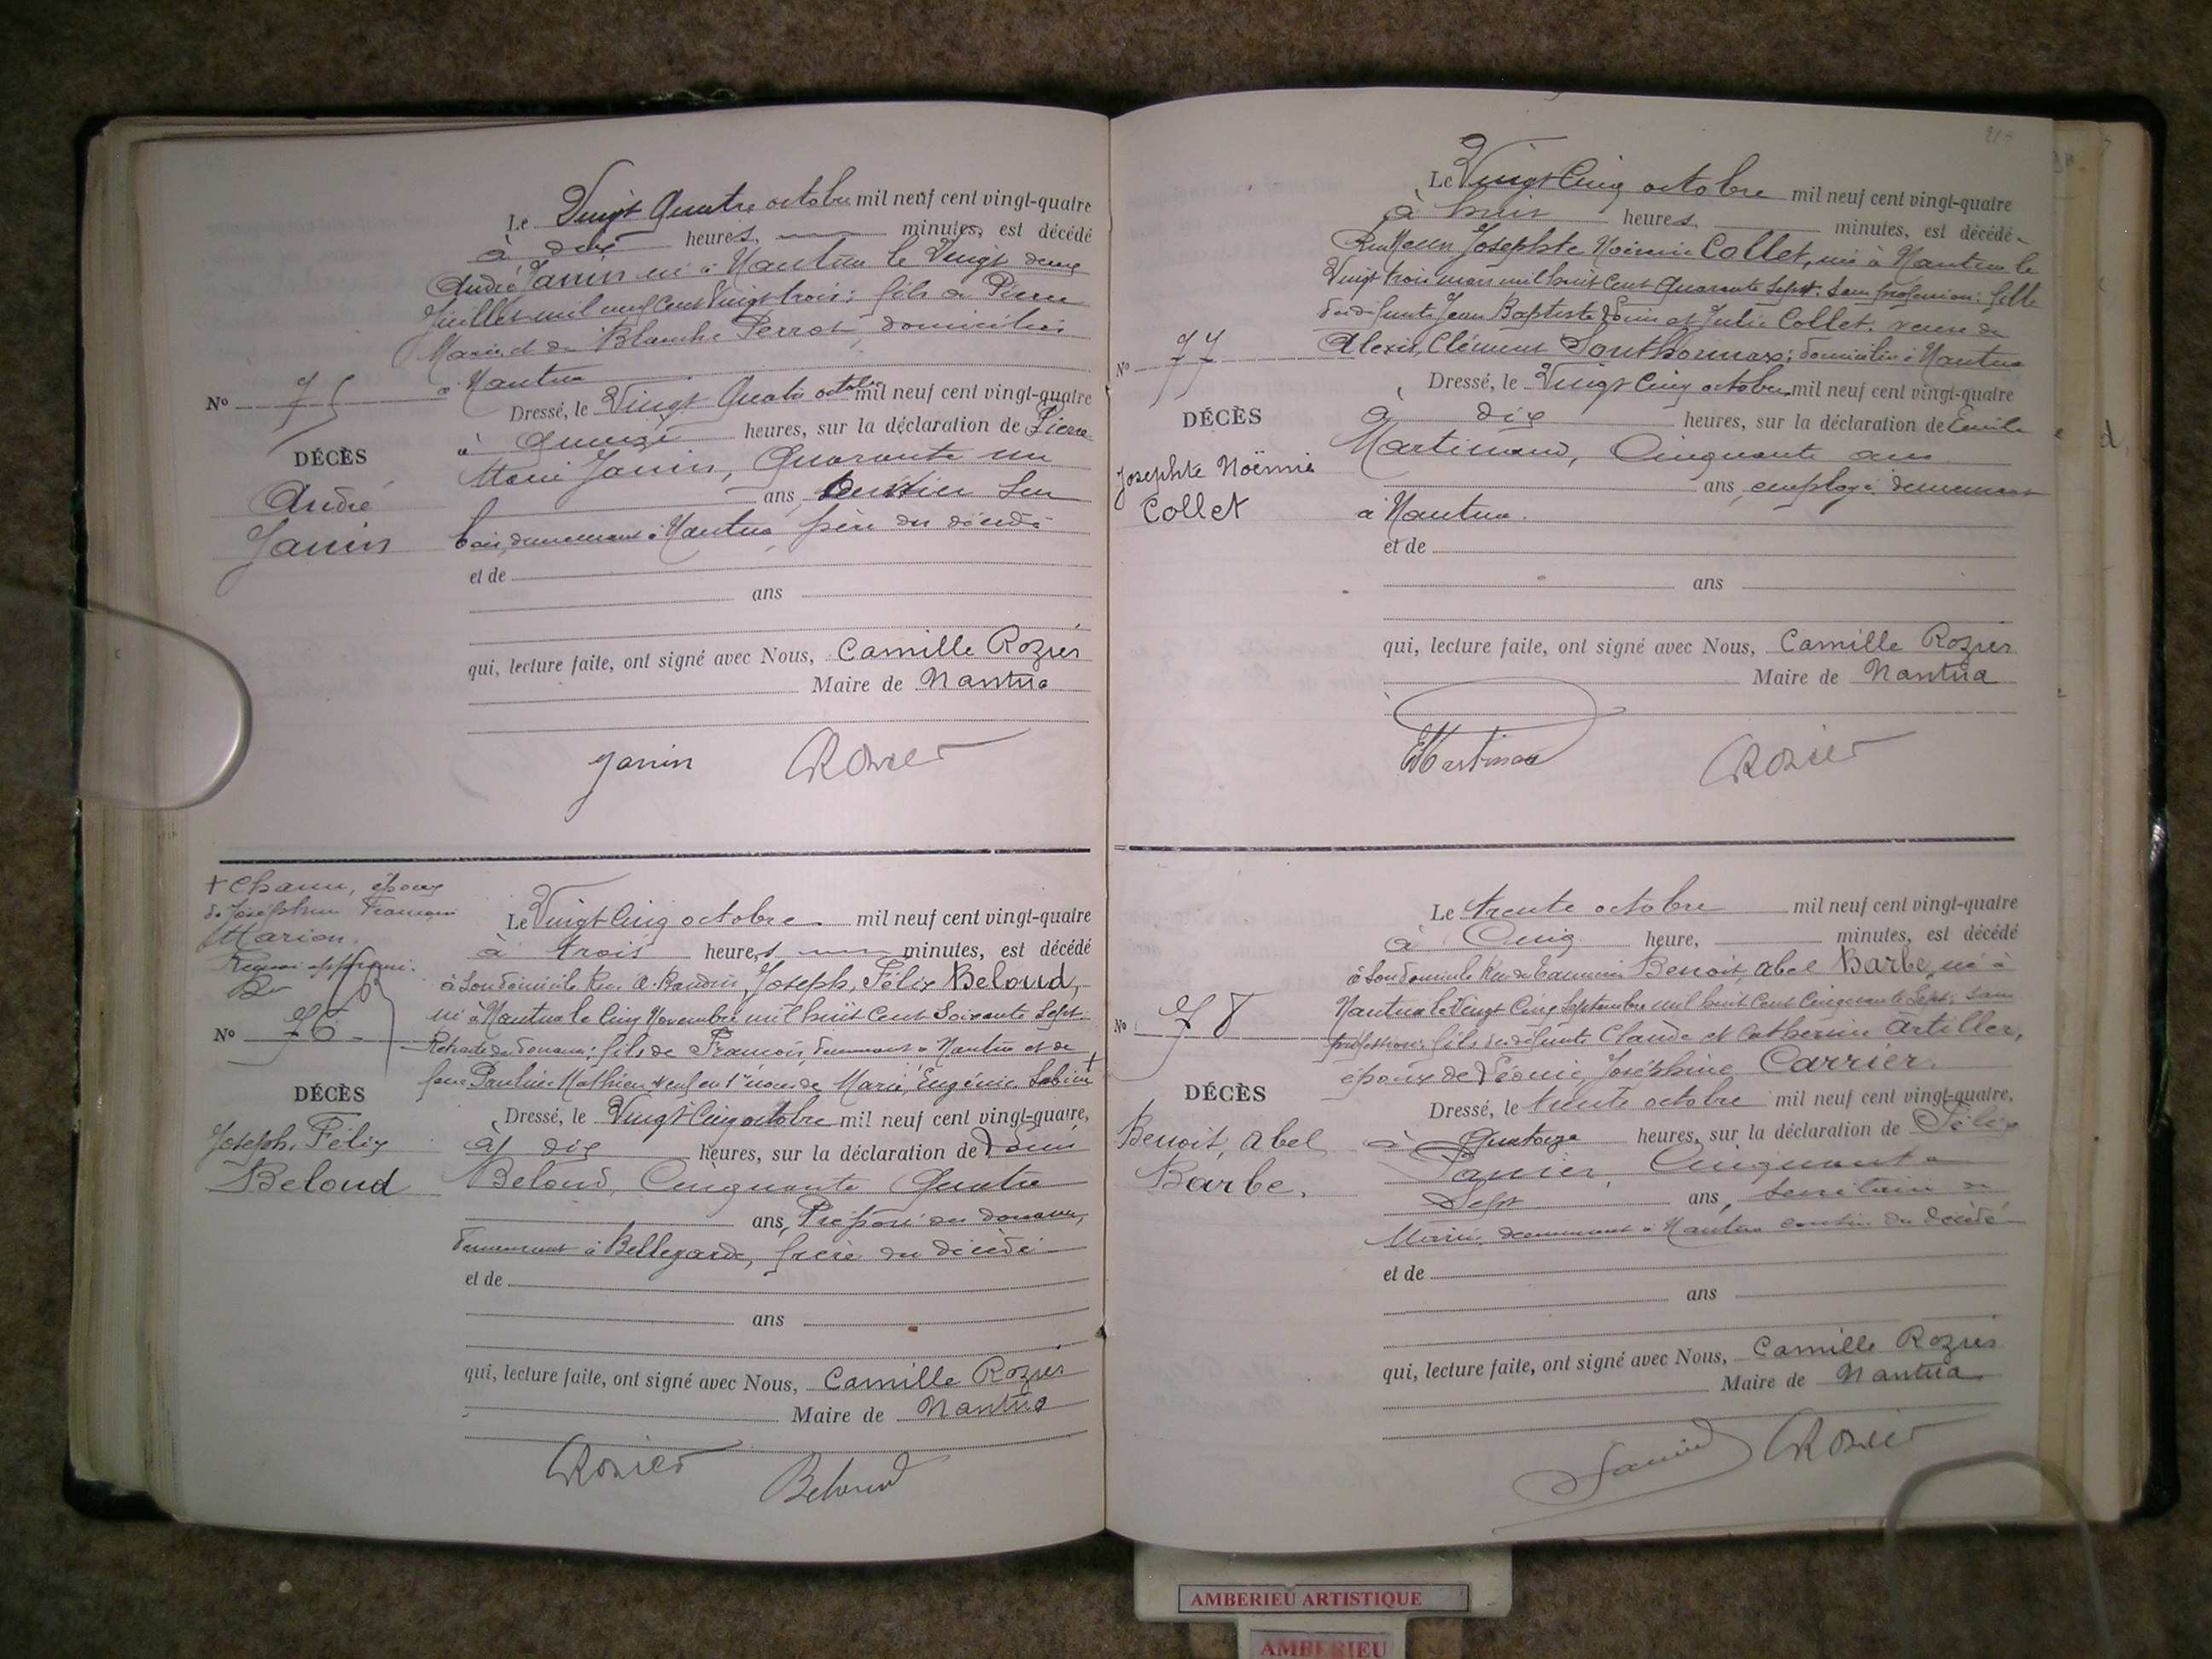 Le Vingt Quatre octobre mil neuf cent vingt-quatre
à dix heures, minutes, est décédé
André Janin né à Nantua le Vingt deux
Juillet mil neuf cent vingt trois; fils de Pierre
Marie et de Blanche Perrot, domiciliés
à Nantua
No 75
Dressé, le Vingt Quatre octobre mil neuf cent vingt-quatre
à Quinze heures, sur la déclaration de Pierre
DÉCÈS
Marie Janin, Quarante un
André
ans,
Janin
demeurant à Nantua, père du décédé
et de
ans
qui, lecture faite, ont signé avec Nous, Camille Rozier
Maire de Nantua
Janin Rozier
+ époux
de Joséphine
Marion.
Le Vingt Cinq octobre mil neuf cent vingt-quatre
à trois heures minutes, est décédé
à son domicile Rue A. Baudin, Joseph, Félix Beloud,
né à Nantua le Cinq Novembre mil huit Cent Soixante Sept
No 76
Retraité des Douanes; fils de François, demeurant à Nantua et de
feue Pauline Mathieu veuf en 1res noces de Marie, Eugénie +
DÉCÈS
Dressé, le Vingt Cinq octobre mil neuf cent vingt-quatre,
Joseph, Félix
à dix heures, sur la déclaration de Louis
Beloud
Beloud, Cinquante Quatre
ans, Préposé des douanes,
demeurant à Bellegarde, frère du décédé
et de
ans
qui, lecture faite, ont signé avec Nous, Camille Rozier
Maire de Nantua
Rozier Beloud
Le Vingt Cinq octobre mil neuf cent vingt-quatre
à huit heures, minutes, est décédé
Josephte Noémie Collet, née à Nantua le
Vingt trois mars mil huit Cent Quarante Sept; Sans profession; fille
de défunts Jean Baptiste Louis et Julie Collet, veuve de
No 77
Alexis, Clément Southonnax; domiciliée à Nantua
Dressé, le Vingt Cinq octobre mil neuf cent vingt-quatre
DÉCÈS
à dix heures, sur la déclaration de Emile
Josephte Noëmie
Collet
Martinand, Cinquante ans
ans, employé demeurant
à Nantua.
et de
ans
qui, lecture faite, ont signé avec Nous, Camille Rozier
Maire de Nantua
Rozier
Le trente octobre mil neuf cent vingt-quatre
à Cinq heure, minutes, est décédé
à son domicile Rue du Benoit, Abel Barbe, né à
Nantua le Vingt Cinq Septembre mil huit Cent Cinquante Sept; sans
No 78
profession; fils de défunts Claude et Catherine Artiller,
époux de Léonie, Joséphine Carrier.
DÉCÈS
Dressé, le trente octobre mil neuf cent vingt-quatre,
Benoit, Abel
Barbe.
à Quatorze heures, sur la déclaration de Félix
Cinquante
Sept ans, Secrétaire de
Mairie, demeurant à Nantua cousin du décédé
et de
ans
qui, lecture faite, ont signé avec Nous, Camille Rozier
Maire de Nantua
Rozier
AMBERIEU ARTISTIQUE
AMBERIEU